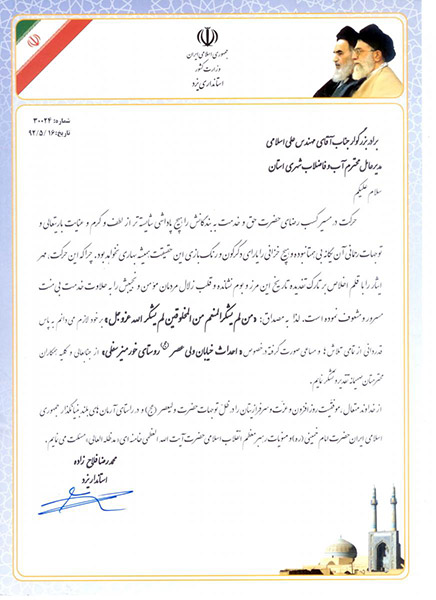 جمهوری اسلامی ایران
وزارت کشور
استانداری یزد
شماره: ۳۰۰۲۴
تاریخ: ۹۲/۵/۱۶
برادر بزرگوار جناب آقای مهندس علی اسلامی
مدیرعامل محترم آب و فاضلاب شهری استان
سلام علیکم
حرکت در مسیر کسب رضای حضرت حق و خدمت به بندگانش را هیچ پاداشی شایسته تر از لطف و کرم و عنایت باریتعالی و
توجهات رحمانی آن یگانه بی همتا نبوده و هیچ خزانی را یارای دگرگون و رنگ بازی این حقیقت همیشه بهاری نخواهد بود. چرا که این حرکت، مهر
ایثار را با قلم اخلاص بر تارک تفدیده تاریخ این مرز و بوم نشانده و قلب زلال مردمان مؤمن و نجیبش را به حلاوت خدمت بی منت
مسرور و مشعوف نموده است. لذا به مصداق: «من لم یشکر المنعم من المخلوقین لم یشکر الله عزوجل» بر خود لازم می دانم به پاس
قدردانی از تمامی تلاش ها و مساعی صورت گرفته در خصوص «احداث خیابان ولی عصر (عج) روستای خورمیز سفلی» از جنابعالی و کلیه همکاران
محترمتان صمیمانه تقدیر و تشکر نمایم.
از خداوند متعال، موفقیت روزافزون و عزت و سرفرازیتان را در ظل توجهات حضرت ولیعصر (عج) و در راستای آرمان های بلند بنیانگذار جمهوری
اسلامی ایران حضرت امام خمینی (ره) و منویات رهبر معظم انقلاب اسلامی حضرت آیت الله العظمی خامنه ای (مدظله العالی)، مسئلت می نمایم.
محمدرضا فلاح زاده
استاندار یزد